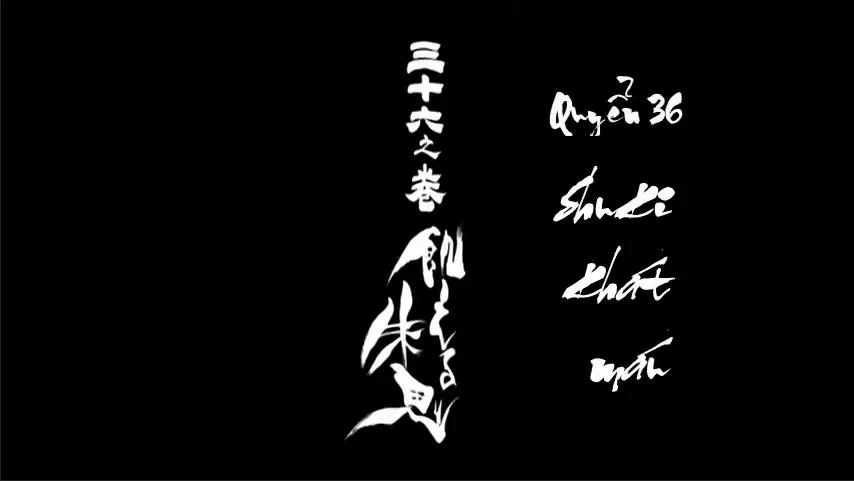 三十六之巻
飢える朱鬼
Quyển 36
Shuki
khát
máu